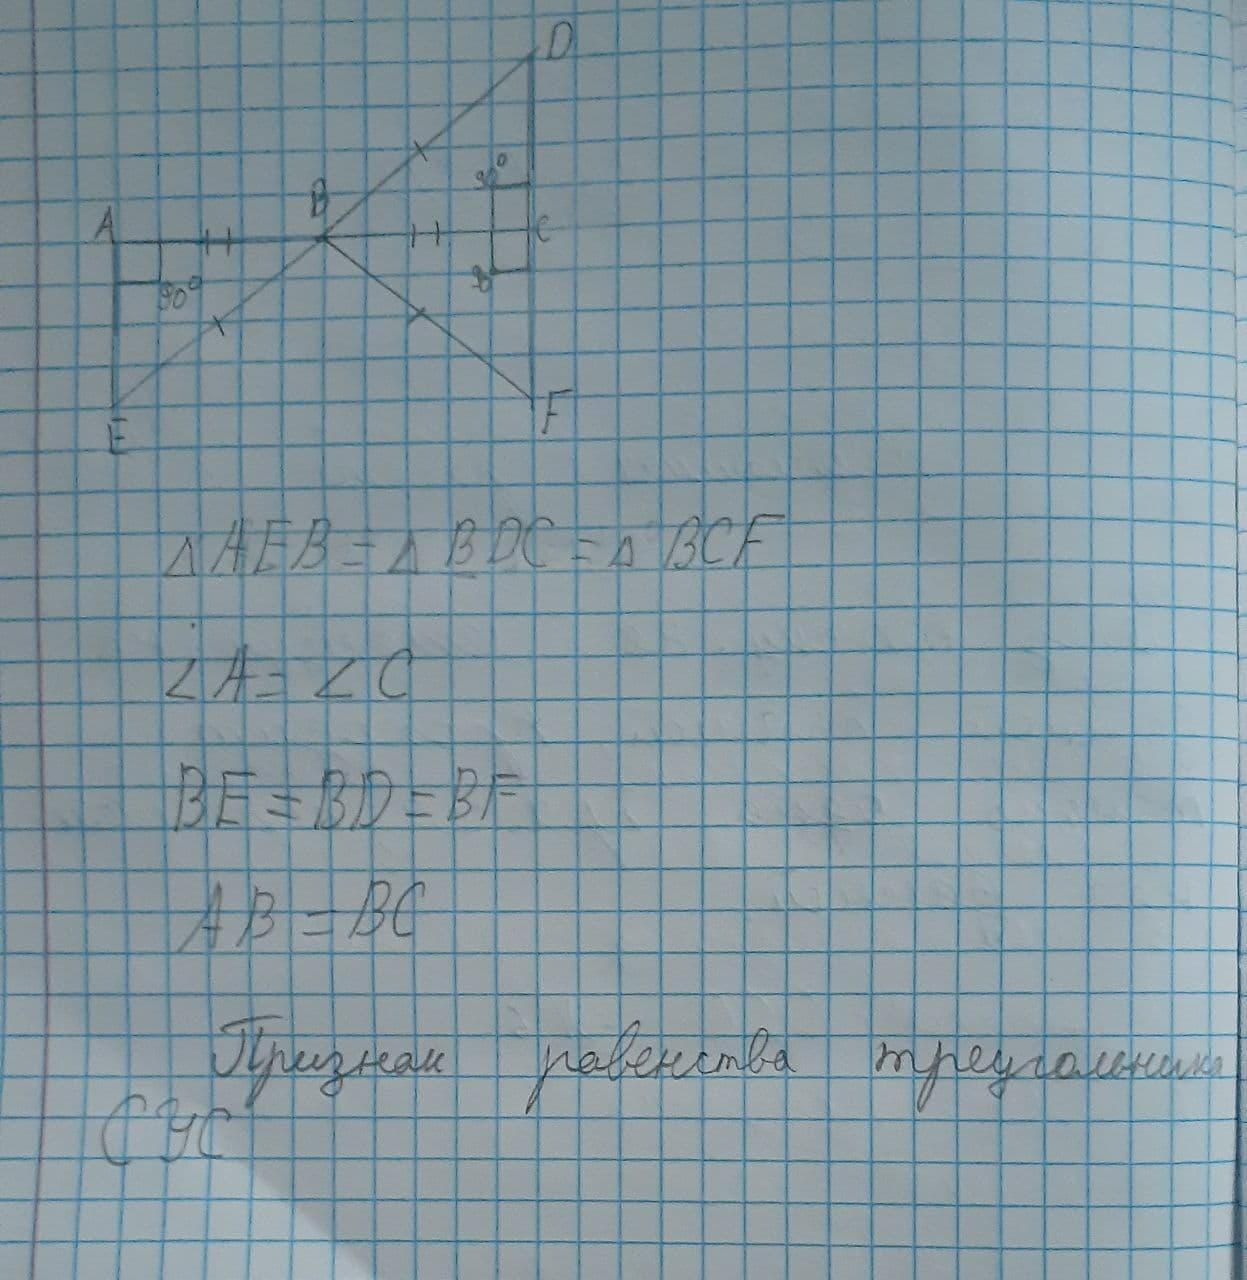 D
90°
B
A
C
90
90°
F
E
△ AEB = △ BDC = △ BCF
∠ A = ∠ C
BE = BD = BF
AB = BC
Признак равенства треугольника
СУС